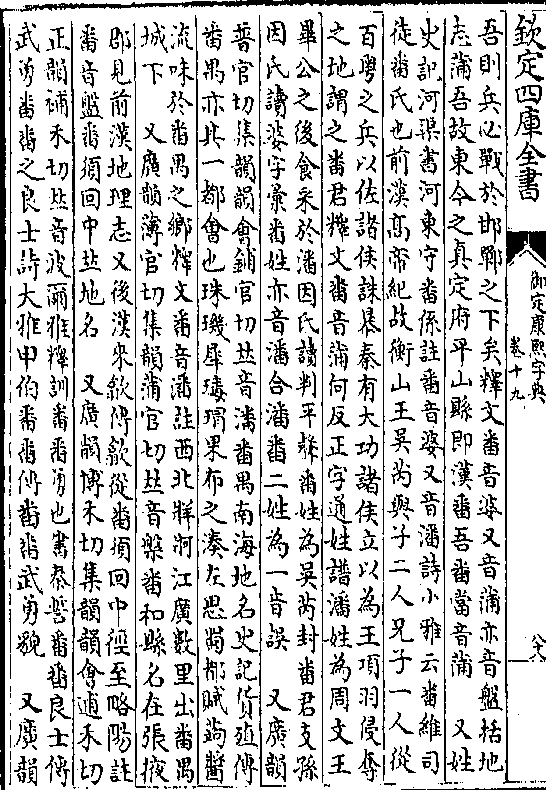 欽定四庫全書
御定康熙字典
卷十九
吾則兵必戰於邯鄲之下矣釋文番音婆又音蒲亦音盤括地
志蒲吾故東今之真定府平山縣即漢番吾番當音蒲　又姓
史記河渠書河東守番係註番音婆又音潘詩小雅云番維司
徒番氏也前漢高帝紀故衡山王吳芮與子二人兄子一人從
百粤之兵以佐諸侯誅暴秦有大功諸侯立以為王項羽侵奪
之地謂之番君釋文番音蒲何反正字通姓譜潘姓為周文王
畢公之後食采於潘因氏讀判平聲番姓為吳芮封番君支孫
因氏讀婆字彙番姓亦音潘合潘番二姓為一音誤　又廣韻
普官切集韻韻會鋪官切𠀤音潘番禺南海地名史記貨殖傳
番禺亦其一都會也珠璣犀瑇瑁果布之湊左思蜀都賦蒟醬
流味於番禺之鄉釋文番音潘註西北牂牁江廣數里出番禺
城下　又廣韻薄官切集韻蒲官切𠀤音槃番和縣名在張掖
郡見前漢地理志又後漢來歙傳歙從番須回中徑至略陽註
番音盤番須回中𠀤地名　又廣韻博禾切集韻韻會逋禾切
正韻補禾切𠀤音波爾雅釋訓番番勇也書泰誓番番良士傳
武勇番番之良士詩大雅申伯番番傳番番武勇貌　又廣韻